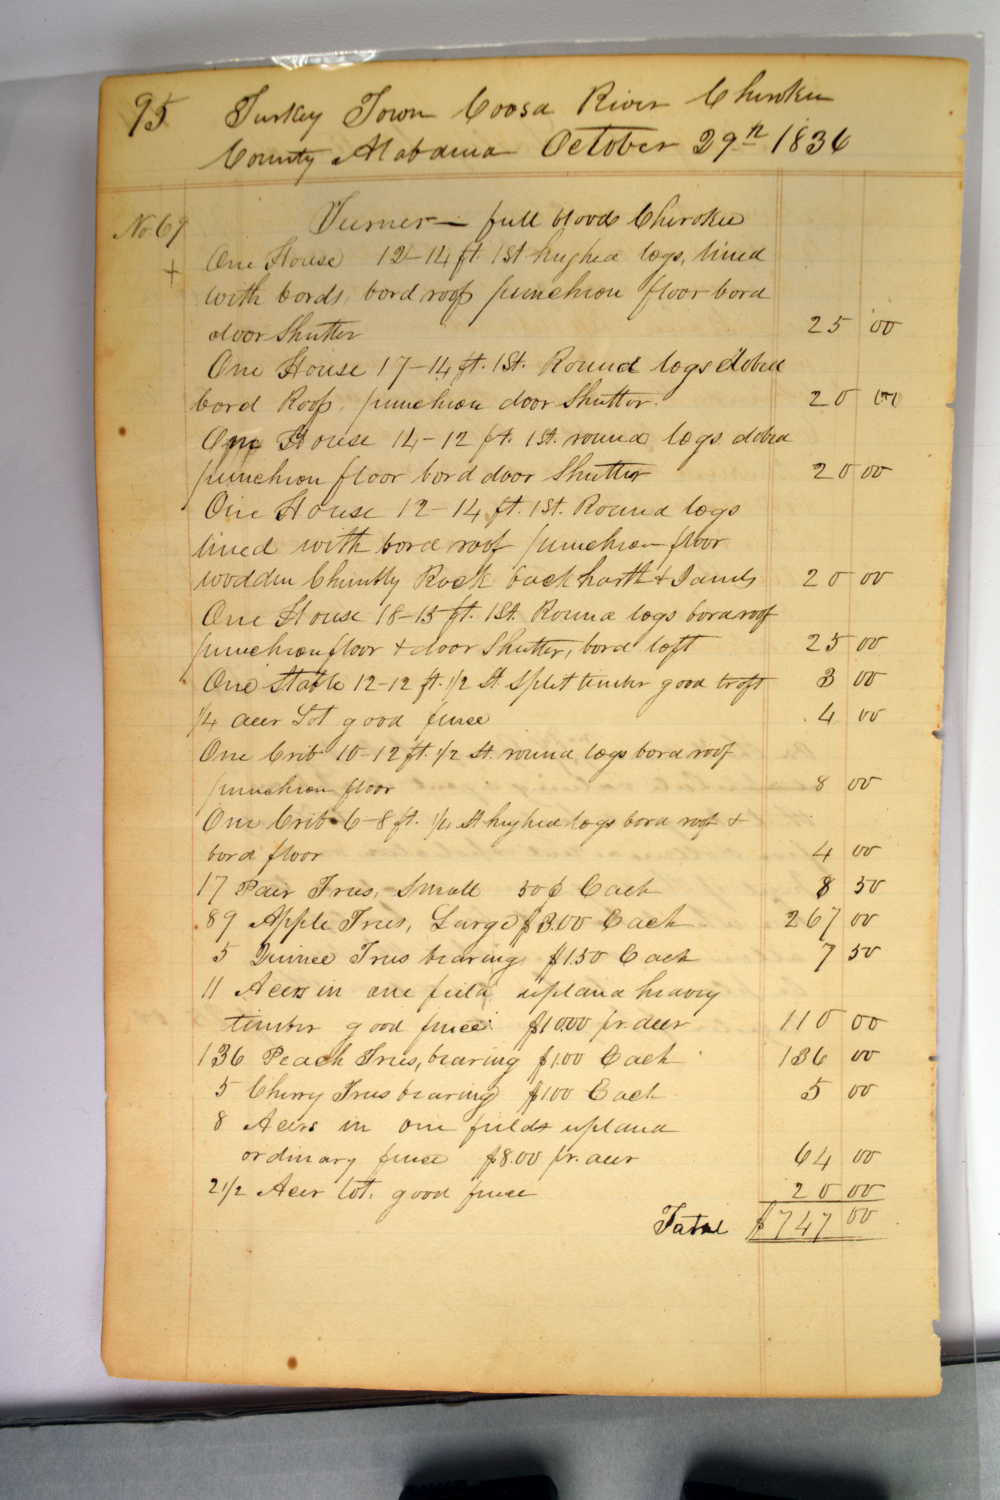 95 Turkey Town Coosa River Cherokee
County Alabama October 29th 1836
No. 69 Turner — full blood Cherokee
+ One House 12-14 ft. 1 St hughed logs, lined
with bords, bord roof puncheon floor bord
door Shutter 25 00
One House 17-14 ft. 1 St. Round logs dobed
bord Roof, puncheon door Shutter. 20 00
One House 14-12 ft. 1 St. round logs dobed
puncheon floor bord door Shutter 20 00
One House 12-14 ft. 1 St. Round logs
lined with bord roof puncheon floor
wodden Chimbly Rock back harth & Jambs 20 00
One House 18-15 ft. 1 St. Round logs bord roof
puncheon floor & door Shutter, bord loft 25 00
One Stable 12-12 ft. 1/2 St. split timber good troft 3 00
1/4 acer Lot good fence 4 00
One Crib 10-12 ft. 1/2 St. round logs bord roof
puncheon floor 8 00
One Crib 6-8 ft. St hughed logs bord roof &
bord floor 4 00
17 Pair Trees, Small 50¢ Each 8 50
89 Apple Trees, Large $3.00 Each 267 00
5 Quince Trees bearing $1.50 Each 7 50
11 Acers in one field upland heavy
timber good fence $10.00 pr. acer 110 00
136 Peach Trees, bearing $1.00 Each 136 00
5 Cherry Trees bearing $1.00 Each 5 00
8 Acers in one fields upland
ordinary fence $8.00 pr. acer 64 00
2 1/2 Acer lot. good fence 20 00
Total $747 00